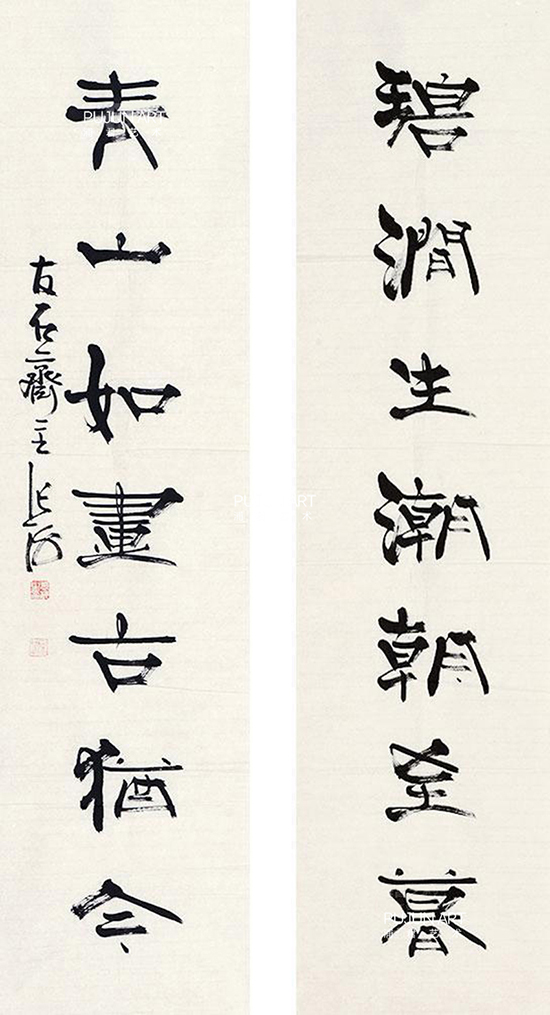 碧澗生潮朝至暮
青山如畫古猶今
石齋主
PUJUN ART
PUJUN ART
PUJUN ART